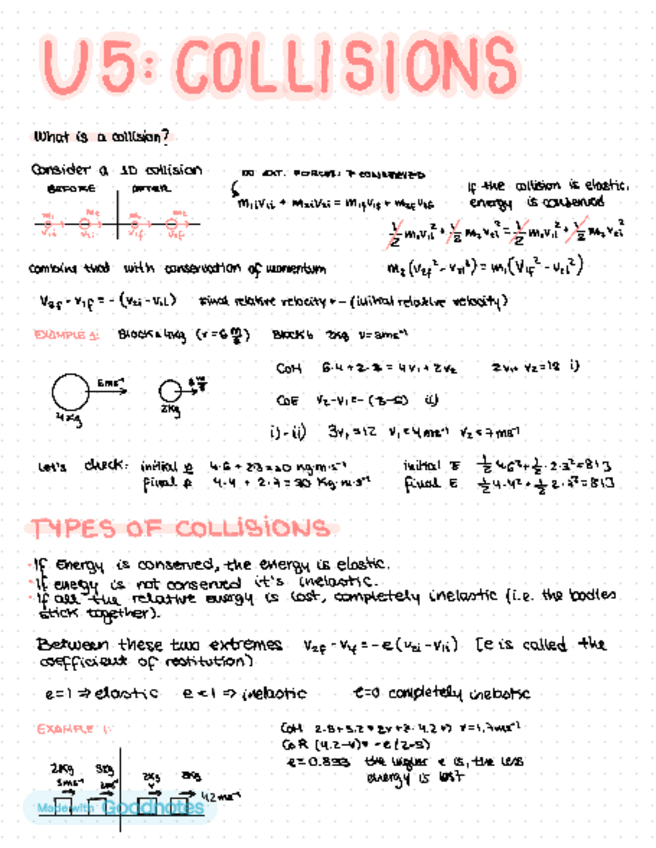 U5: COLLISIONS
What is a collision?
Consider a 1D collision
BEFORE AFTER
NO EXT. FORCES: P CONSERVED
m₁v₁ᵢ + m₂v₂ᵢ = m₁v₁f + m₂v₂f
If the collision is elastic,
energy is conserved
combine that with conservation of momentum
v₂f - v₁f = -(v₂ᵢ - v₁ᵢ) final relative velocity = - (initial relative velocity)
EXAMPLE 1: Block a 4kg (v=6 m/s) Block b 2kg v=3ms⁻¹
6ms⁻¹
4kg
2kg
CoM 6·4+2·3 = 4v₁+2v₂ 2v₁+v₂=15 i)
CoE v₂-v₁=-(3-6) ii)
i)-ii) 3v₁=12 v₁=4ms⁻¹ v₂=7ms⁻¹
Let's check: initial p 4·6 + 2·3=30 kg·m·s⁻¹
final p 4·4 + 2·7=30 kg·m·s⁻¹
initial E ½ 4·6²+½·2·3²=81J
final E ½ 4·4²+½ 2·7²=81J
TYPES OF COLLISIONS
·If energy is conserved, the energy is elastic.
·If energy is not conserved it's inelastic.
·If all the relative energy is lost, completely inelastic (i.e. the bodies
stick together).
Between these two extremes v₂f - v₁f = -e(v₂ᵢ - v₁ᵢ) [e is called the
coefficient of restitution)
e=1 ⇒ elastic e<1 ⇒ inelastic e=0 completely inelastic
EXAMPLE 1:
2kg 3kg
5ms⁻¹ 2ms⁻¹
2kg 3kg
v 4.2ms⁻¹
CoR (4.2-v)= -e(2-5)
e=0.833 the higher e is, the less
energy is lost
Made with Goodnotes